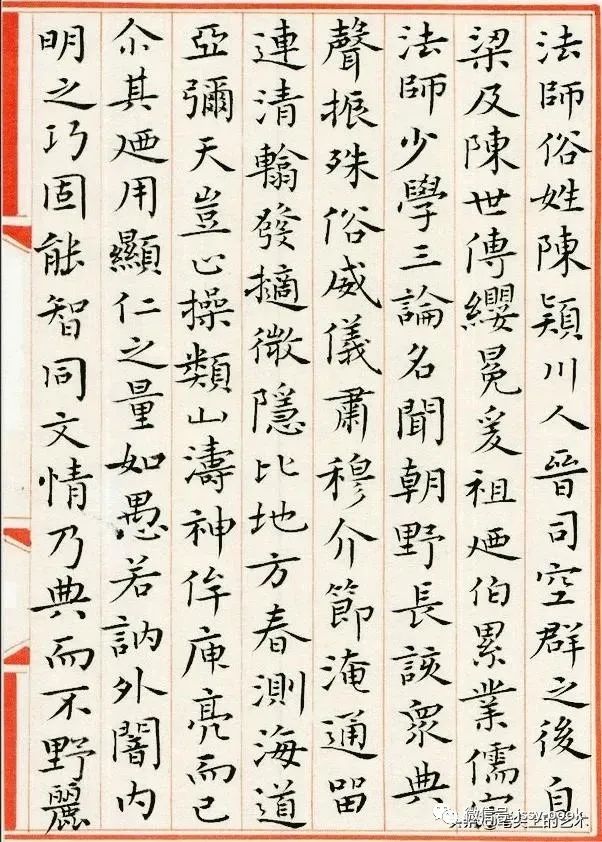 法師俗姓陳穎川人晉司空群之後自
梁及陳世傳纓冕爰祖廼伯累業儒
法師少學三論名聞朝野長該衆典
聲振殊俗威儀肅穆介節淹通留
連清翰發擿微隱比地方春測海道
亞彌天豈止操類山濤神侔庾亮而已
尒其廼用顯仁之量如愚若訥外闇內
明之巧固能智同文情乃典而不野麗